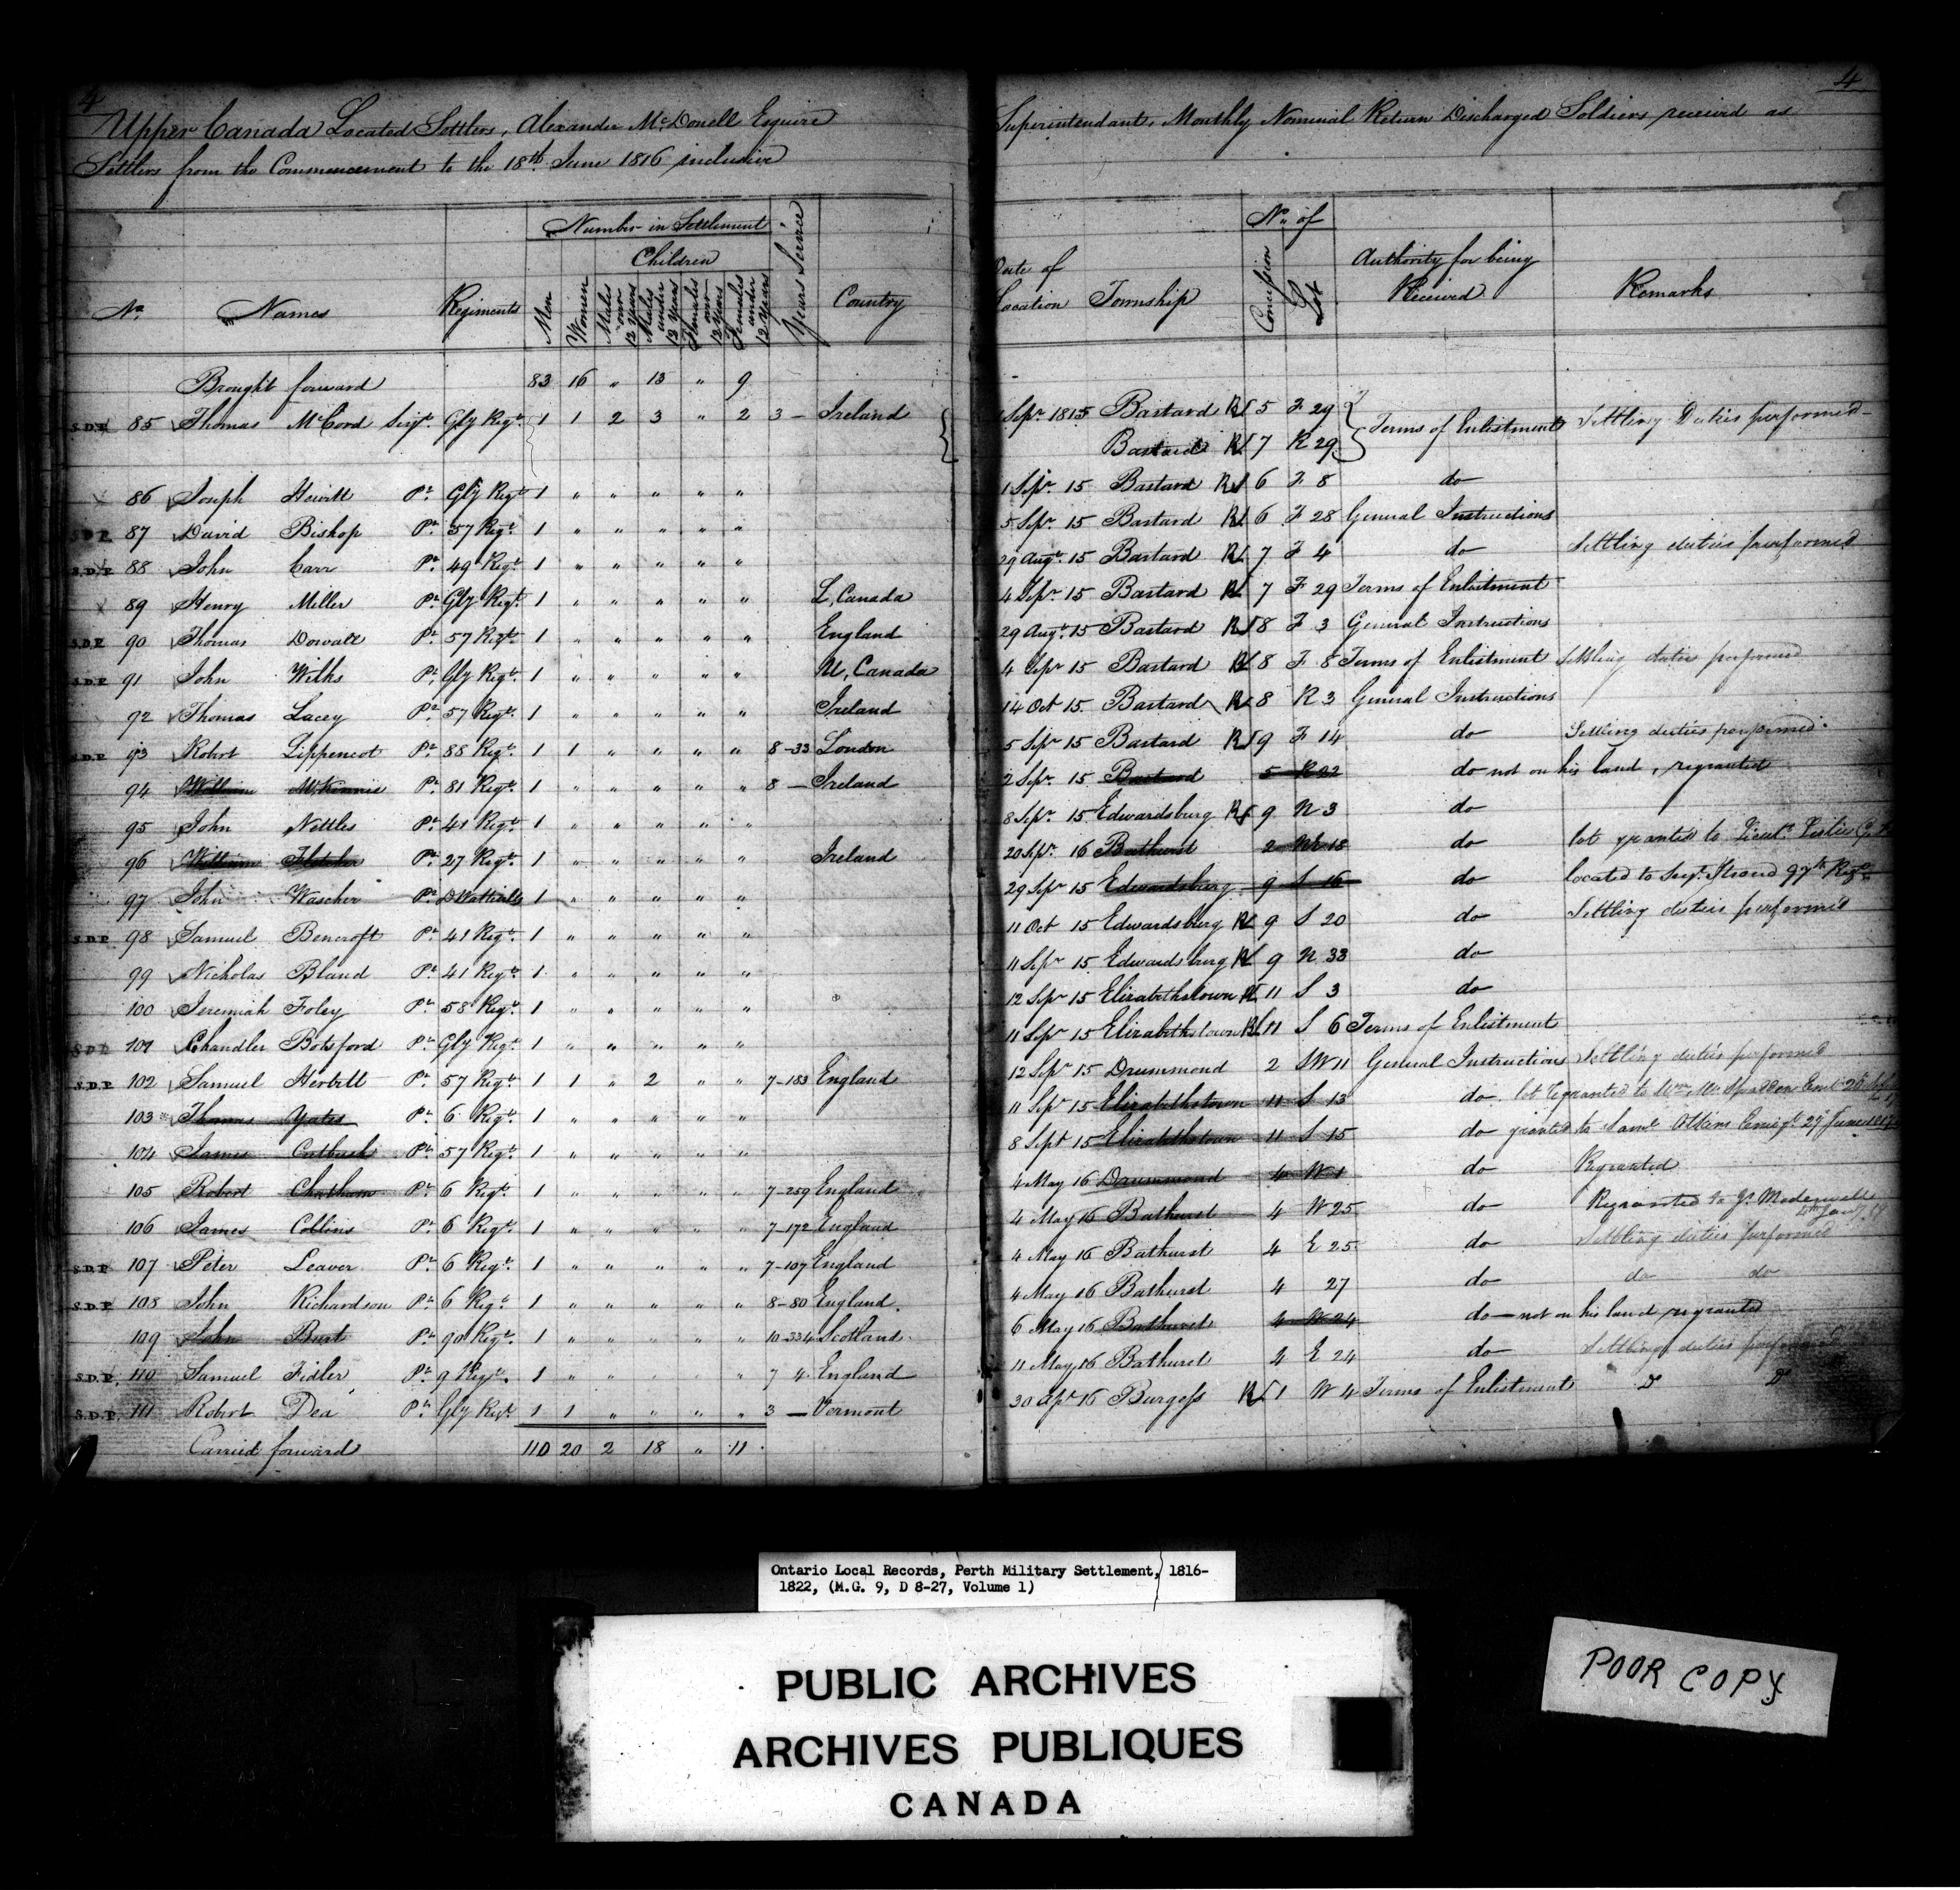 4
4
Upper Canada Located Settlers, Alexander McDonell Esquire Superintendant, Monthly Nominal Return Discharged Soldiers received as
Settlers from the Commencement to the 18th. June 1816 inclusive
No. Names Regiments Number in Settlement Men Women Children Males over 12 Years Males under 12 Years Females over 12 Years Females under 12 Years Years Service Country Date of Location Township No. of Concession Lot Authority for being Received Remarks
Brought forward 83 16 " 13 " 9
S.D.P. 85 Thomas McCord Serjt. Gly Regt. 1 1 2 3 " 2 3 — Ireland 1 Sepr. 1815 Bastard 5 F 29 Terms of Enlistment Settling Duties performed
Bastard 7 R 29
86 Joseph Hewitt Pt. Gly Regt. 1 " " " " " 1 Sepr. 15 Bastard 6 F 8 do
S.D.P. 87 David Bishop Pt. 57 Regt. 1 " " " " " 5 Sepr. 15 Bastard 6 F 28 General Instructions
S.D.P. 88 John Carr Pt. 49 Regt. 1 " " " " " 29 Augt. 15 Bastard 7 F 4 do Settling duties performed
89 Henry Miller Pt. Gly Regt. 1 " " " " " L, Canada 4 Sepr. 15 Bastard 7 F 29 Terms of Enlistment
S.D.P. 90 Thomas Dowall Pt. 57 Regt. 1 " " " " " England 29 Augt. 15 Bastard 8 F 3 General Instructions
S.D.P. 91 John Wilks Pt. Gly Regt. 1 " " " " " U, Canada 4 Sepr 15 Bastard 8 F 8 Terms of Enlistment Settling duties performed
92 Thomas Lacey Pt. 57 Regt. 1 " " " " " Ireland 14 Oct 15 Bastard 8 R 3 General Instructions
S.D.P. 93 Robert Lippencot Pt. 88 Regt. 1 1 " " " " 8-33 London 5 Sepr 15 Bastard 9 F 14 do Settling duties performed
94 William McKinnie Pt. 81 Regt. 1 " " " " " 8 — Ireland 2 Sepr. 15 Bastard 5 R 22 do not on his land, regranted
95 John Nettles Pt. 41 Regt. 1 " " " " " 8 Sepr. 15 Edwardsburg 9 N 3 do
96 William Fletcher Pt. 27 Regt. 1 " " " " " Ireland 20 Sepr. 16 Bathurst 2 18 do lot granted to Lieut. Leslie
97 John Wascher Pt. D Watteville 1 " " " " " 29 Sepr 15 Edwardsburg 9 S 16 do located to Serjt. 97th Regt.
S.D.P. 98 Samuel Bencroft Pt. 41 Regt. 1 " " " " " 11 Oct 15 Edwardsburg 9 S 20 do Settling duties performed
99 Nicholas Bland Pt. 41 Regt. 1 " " " " " 11 Sepr 15 Edwardsburg 9 N 33 do
100 Jeremiah Foley Pt. 58 Regt. 1 " " " " " 12 Sepr 15 Elizabethtown 11 S 3 do
S.D.P. 101 Chandler Botsford Pt. Gly Regt. 1 " " " " " 11 Sepr 15 Elizabethtown 11 S 6 Terms of Enlistment
S.D.P. 102 Samuel Herbitt Pt. 57 Regt. 1 1 " 2 " " 7-183 England 12 Sepr 15 Drummond 2 SW 11 General Instructions Settling duties performed
103 Thomas Yates Pt. 6 Regt. 1 " " " " " 11 Sepr 15 Elizabethtown 11 S 13 do lot regranted to Wm.
104 James Cutbush Pt. 57 Regt. 1 " " " " " 8 Sept 15 Elizabethtown 11 S 15 do granted to Saml. Atkins Emigt. 27 June
105 Robert Chatham Pt. 6 Regt. 1 " " " " " 7-259 England 4 May 16 Drummond 4 W 1 do Regranted
106 James Collins Pt. 6 Regt. 1 " " " " " 7-172 England 4 May 16 Bathurst 4 W 25 do Regranted to
S.D.P. 107 Peter Leaver Pt. 6 Regt. 1 " " " " " 7-107 England 4 May 16 Bathurst 4 E 25 do Settling duties performed
S.D.P. 108 John Richardson Pt. 6 Regt. 1 " " " " " 8-80 England. 4 May 16 Bathurst 4 27 do do do
109 John Burt Pt. 90 Regt. 1 " " " " " 10-334 Scotland. 6 May 16 Bathurst 4 W 24 do — not on his land regranted
S.D.P. 110 Samuel Fidler Pt. 9 Regt. 1 " " " " " 7 4 England 11 May 16 Bathurst 4 E 24 do Settling duties performed
S.D.P. 111 Robert Dea Pt. Gly Regt. 1 1 " " " " 3 — Vermont 30 Apr 16 Burgess 1 W 4 Terms of Enlistment Do Do
Carried forward 110 20 2 18 " 11
Ontario Local Records, Perth Military Settlement, 1816-
1822, (M.G. 9, D 8-27, Volume 1)
PUBLIC ARCHIVES
ARCHIVES PUBLIQUES
CANADA
POOR COPY